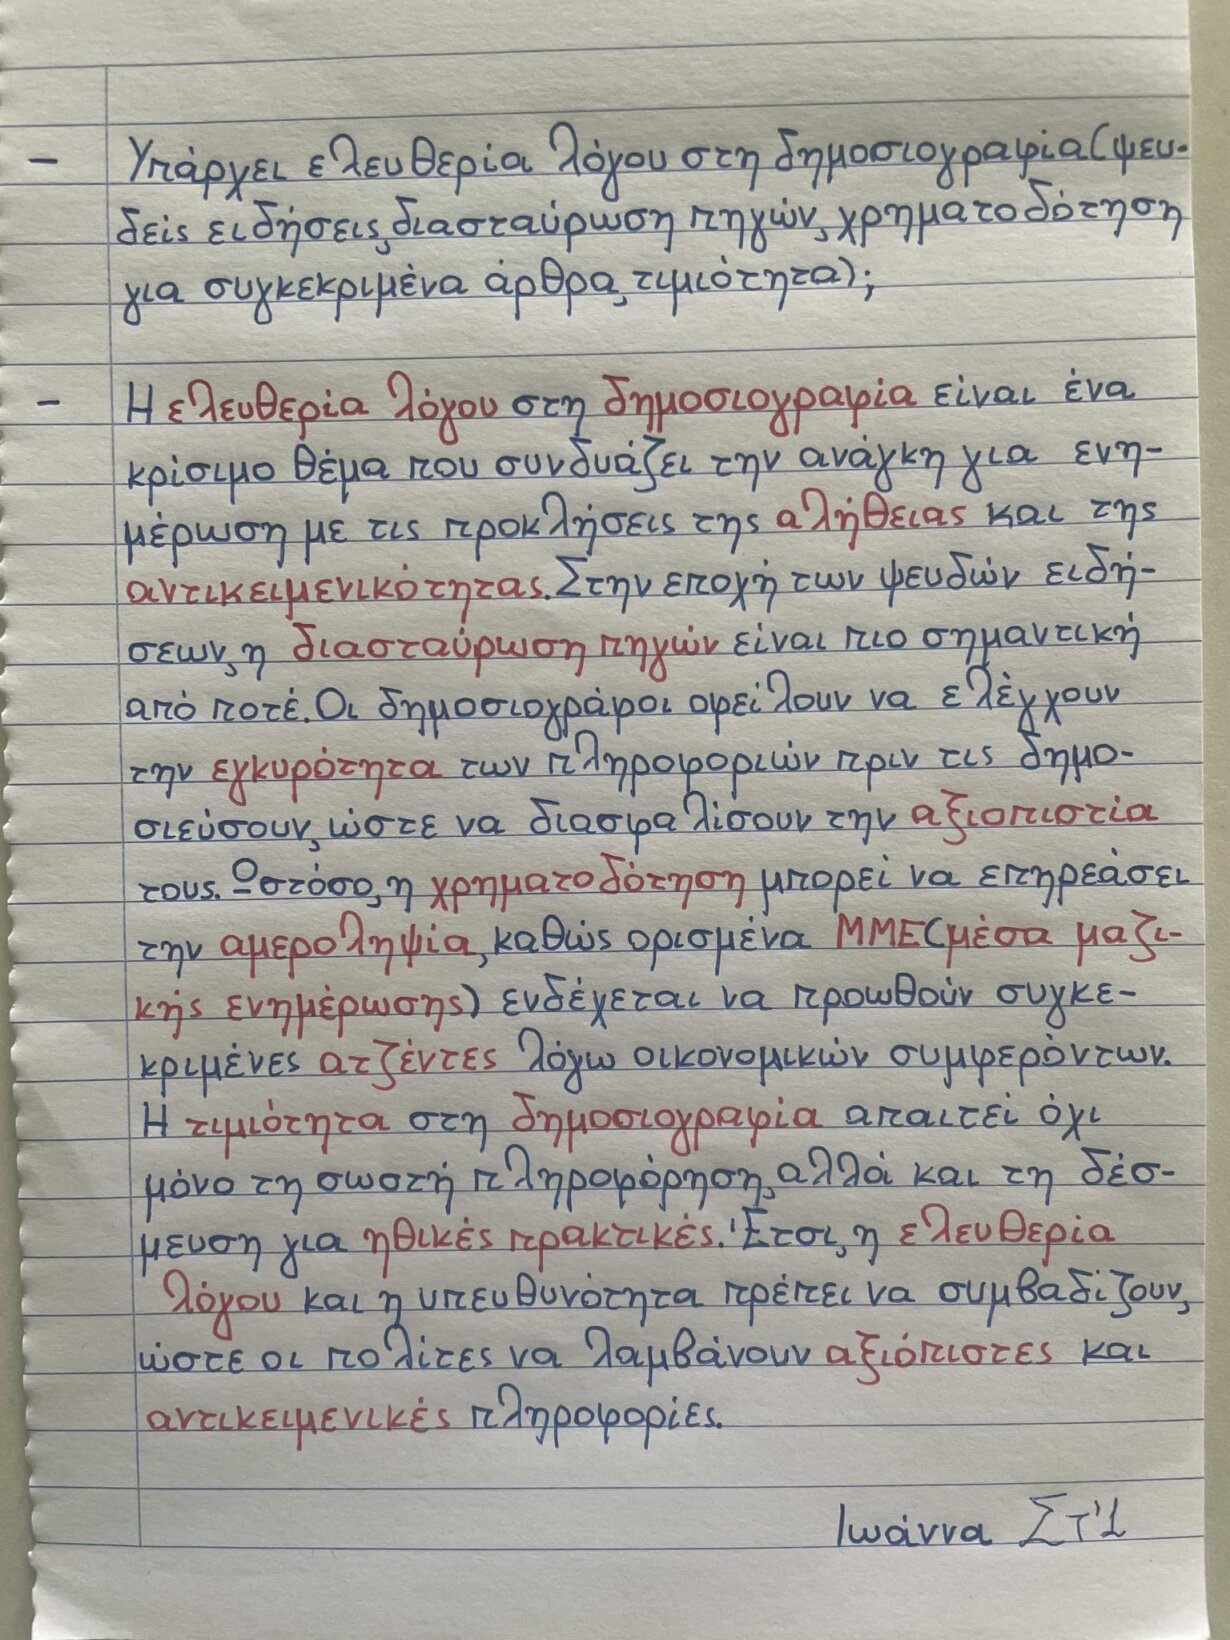 - Υπάρχει ελευθερία λόγου στη δημοσιογραφία (ψευ-
δείς ειδήσεις, διασταύρωση πηγών, χρηματοδότηση
για συγκεκριμένα άρθρα, τιμιότητα);
- Η ελευθερία λόγου στη δημοσιογραφία είναι ένα
κρίσιμο θέμα που συνδυάζει την ανάγκη για ενη-
μέρωση με τις προκλήσεις της αλήθειας και της
αντικειμενικότητας. Στην εποχή των ψευδών ειδή-
σεων, η διασταύρωση πηγών είναι πιο σημαντική
από ποτέ. Οι δημοσιογράφοι οφείλουν να ελέγχουν
την εγκυρότητα των πληροφοριών πριν τις δημο-
σιεύσουν, ώστε να διασφαλίσουν την αξιοπιστία
τους. Ωστόσο, η χρηματοδότηση μπορεί να επηρεάσει
την αμεροληψία, καθώς ορισμένα ΜΜΕ (μέσα μαζι-
κής ενημέρωσης) ενδέχεται να προωθούν συγκε-
κριμένες ατζέντες λόγω οικονομικών συμφερόντων.
Η τιμιότητα στη δημοσιογραφία απαιτεί όχι
μόνο τη σωστή πληροφόρηση, αλλά και τη δέσ-
μευση για ηθικές πρακτικές. Έτσι, η ελευθερία
λόγου και η υπευθυνότητα πρέπει να συμβαδίζουν,
ώστε οι πολίτες να λαμβάνουν αξιόπιστες και
αντικειμενικές πληροφορίες.
Ιωάννα Στ'1